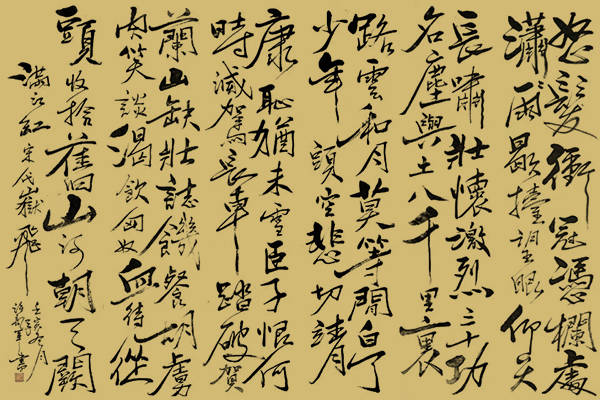 怒髮衝冠憑欄處
瀟雨歇擡望眼仰天
長嘯壯懷激烈三十功
名塵與土八千里裏
路雲和月莫等閒白了
少年頭空悲切靖
康恥猶未雪臣子恨何
時滅駕長車踏破賀
蘭山缺壯誌饑餐胡虜
肉笑談渴飲匈奴血待從
頭收拾舊山河朝天闕
滿江紅宋代嶽飛